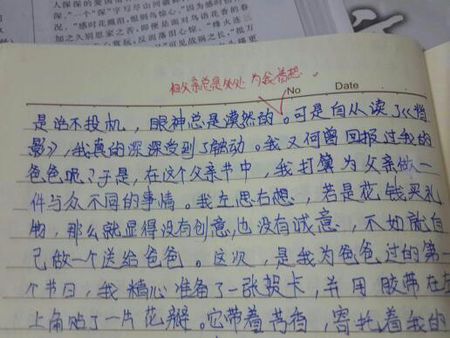 "感时花溅泪,恨别鸟惊心"
加之久别思家之苦
但父亲总是处处为我着想。
No Date
是话不投机，眼神总是漠然的。可是自从读了《背
影》，我真的深深受到了触动。我又何曾回报过我的
爸爸呢？于是，在这个父亲节中，我打算为父亲做一
件与众不同的事情。我左思右想，若是花钱买礼
物，那么就显得没有创意，也没有诚意，不如就自
己做一个送给爸爸。这次，是我为爸爸过的第一
个节日，我精心准备了一张贺卡，并用胶带在左
上角贴了一片花瓣。它带着芳香，寄托着我的